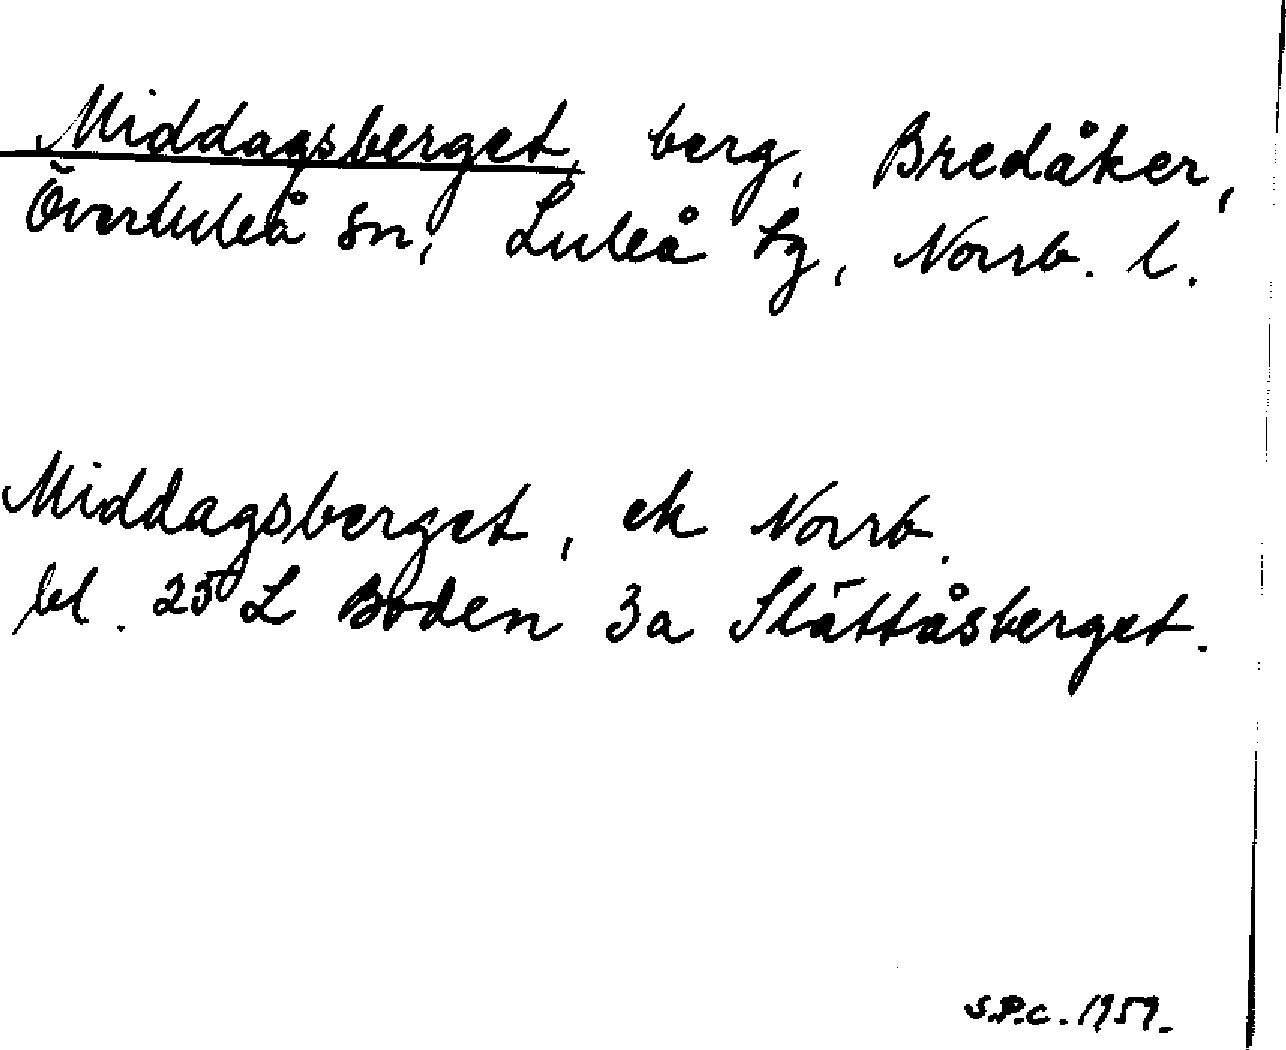 Middagsberget, berg, Bredåker,
Överluleå sn, Luleå tg, Norrb. l.
Middagsberget, ek Norrb.
bl. 25 L Boden 3a Slättåsberget.
S.P.C. 1959.